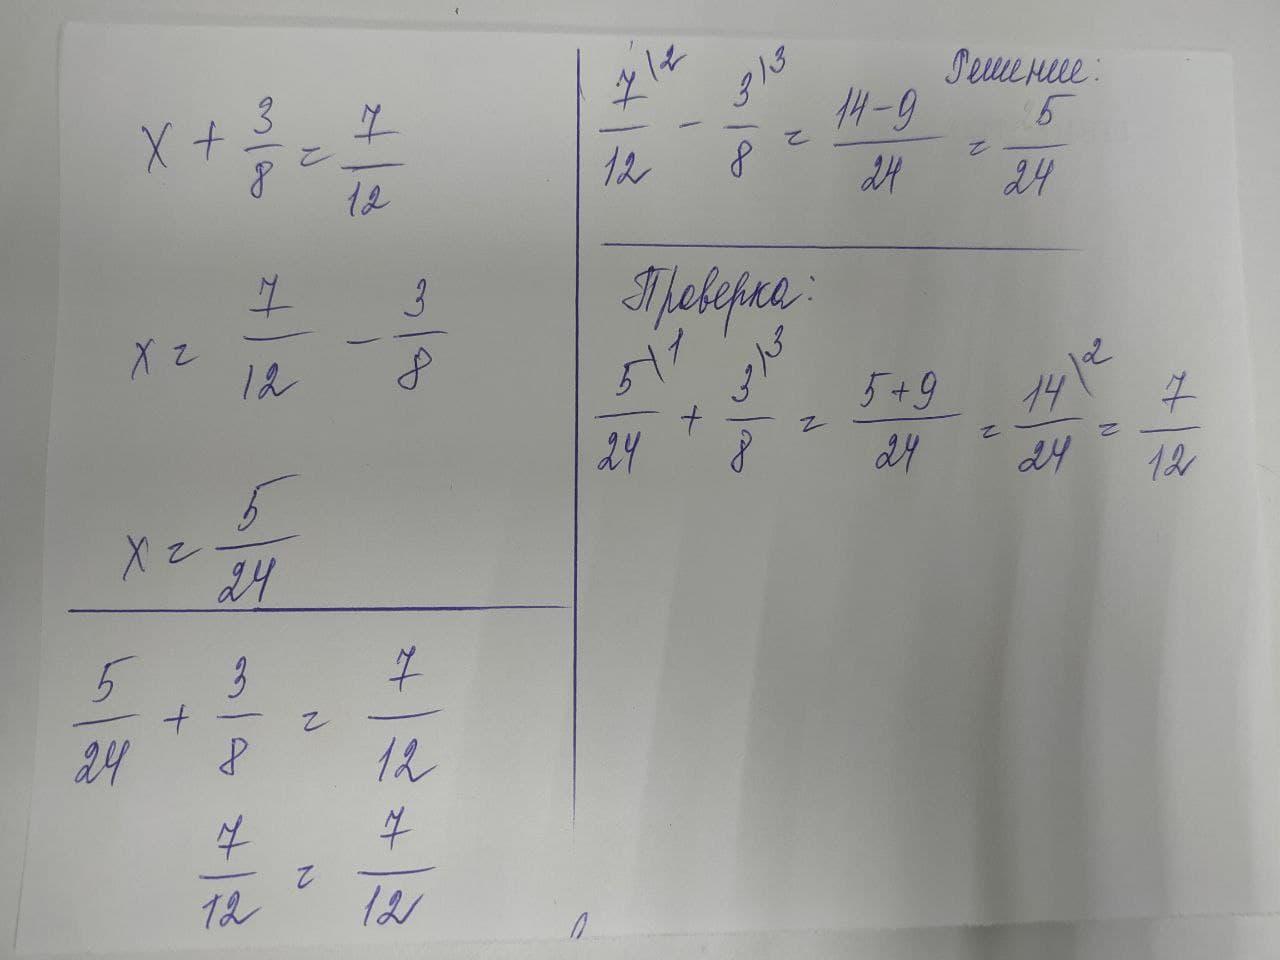 x + 3/8 = 7/12
x = 7/12 - 3/8
x = 5/24
5/24 + 3/8 = 7/12
7/12 = 7/12
Решение:
7\2/12 - 3\3/8 = 14-9/24 = 5/24
Проверка:
5\1/24 + 3\3/8 = 5+9/24 = 14\2/24 = 7/12